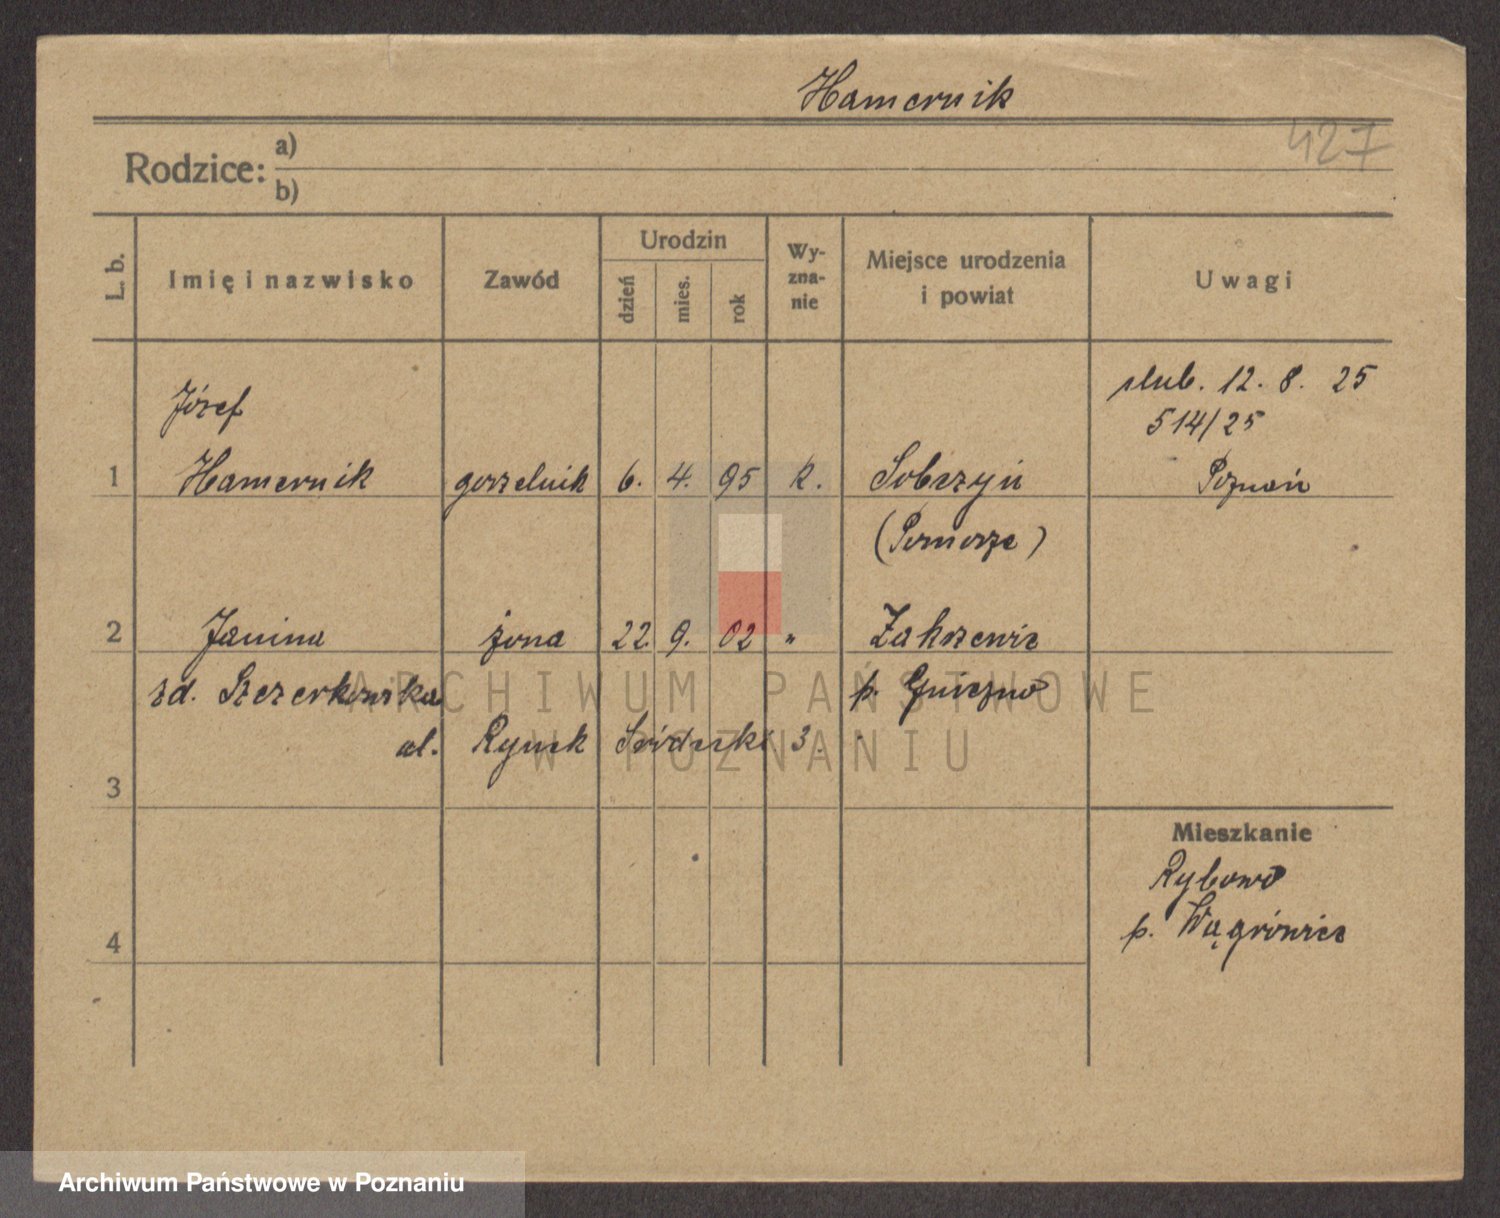 Hamernik
427
Rodzice: a)
b)
L. b.
Imię i nazwisko
Zawód
Urodzin
dzień
mies.
rok
Wy-
zna-
nie
Miejsce urodzenia
i powiat
Uwagi
ślub. 12. 8. 25
514/25
Józef
1 Hamernik gorzelnik 6. 4. 95 k. Sobczyń Poznań
(Pomorze)
2 Janina żona 22. 9. 02 " Zakrzewie
zd. Szczerkowska p. Gniezno
ul. Rynek Śródecki 3.
3
Mieszkanie
Rybowo
p. Wągrówiec
4
ARCHIWUM PAŃSTWOWE
W POZNANIU
Archiwum Państwowe w Poznaniu